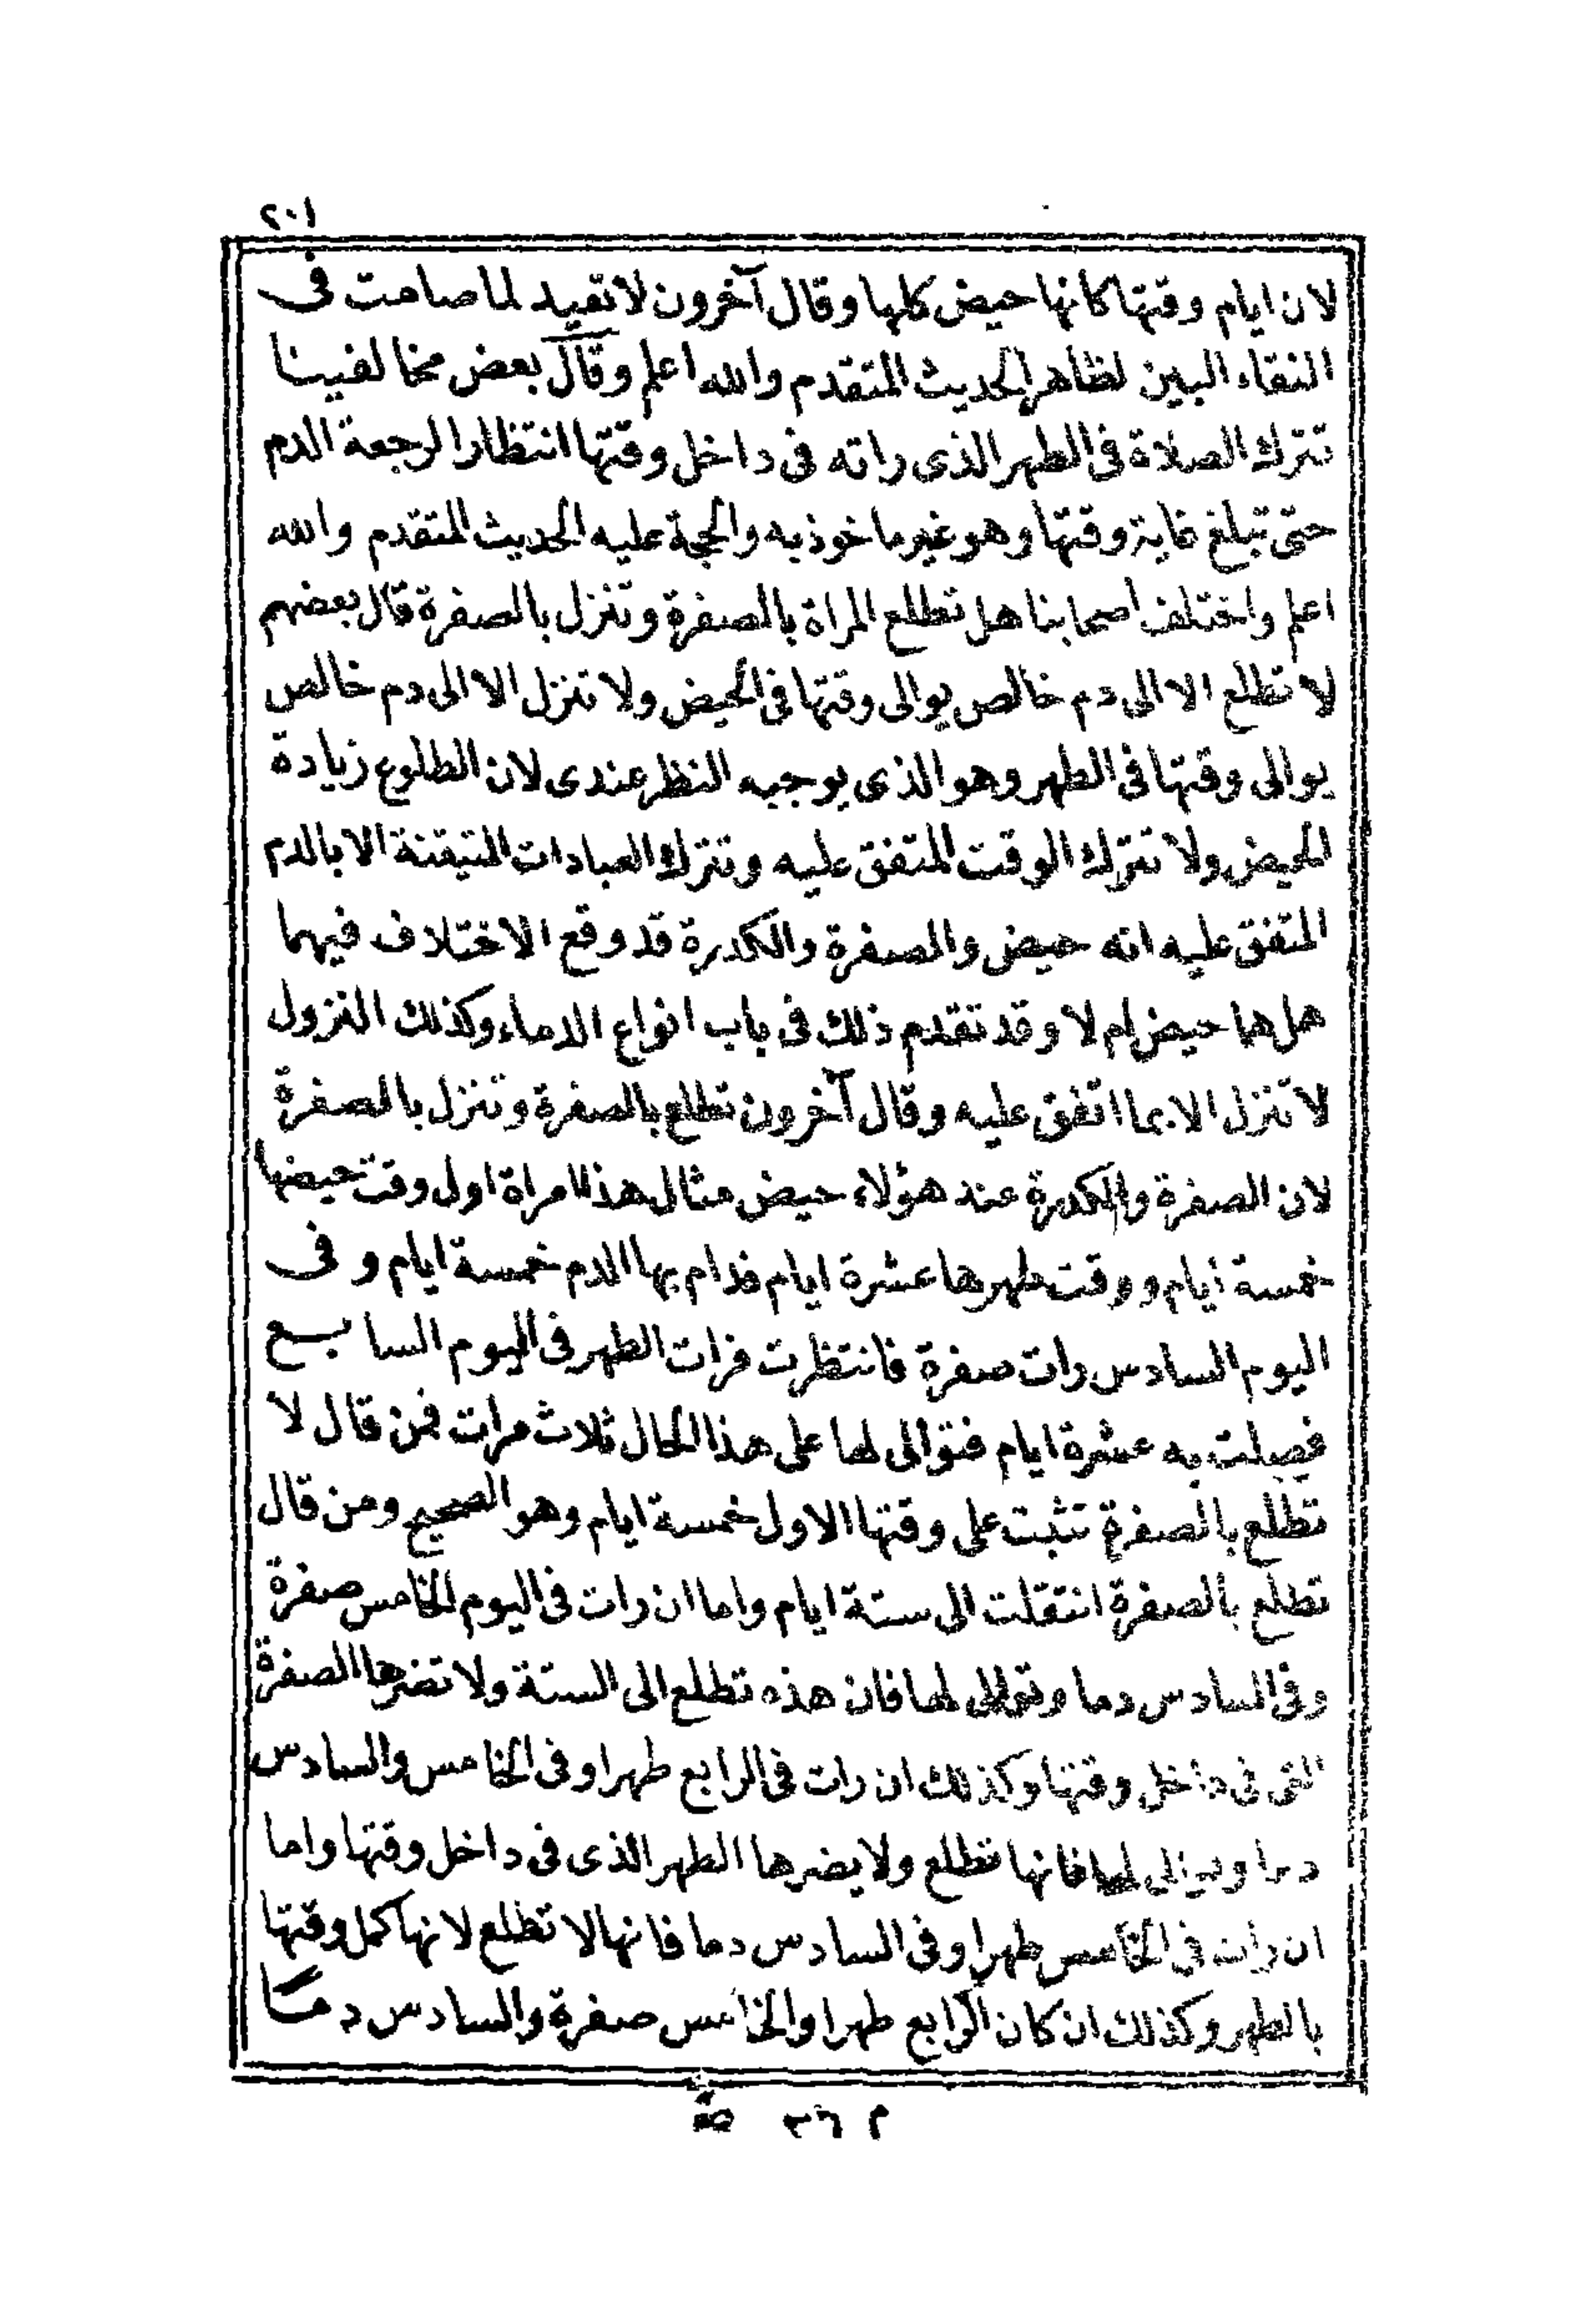 ٢٠١
لان ايام وقتها كانها حيض كلها وقال آخرون لا تعيد لما صامت فى
النقاء البين لظاهر الحديث المتقدم والله اعلم وقال بعض مخالفينا
تترك الصلاة فى الطهر الذى راته فى داخل وقتها انتظارا لرجعة الدم
حتى تبلغ غاية وقتها وهو غير ماخوذ به والحجة عليه الحديث المتقدم والله
اعلم واختلف اصحابنا هل تطلع المراة بالصفرة وتنزل بالصفرة قال بعضهم
لا تطلع الا الى دم خالص يوالى وقتها فى الحيض ولا تنزل الا الى دم خالص
يوالى وقتها فى الطهر وهو الذى يوجبه النظر عندى لان الطلوع زيادة
الحيض ولا تترك الوقت المتفق عليه وتترك العبادات المتيقنة الا بالدم
المتفق عليه انه حيض والصفرة والكدرة قد وقع الاختلاف فيهما
هل هما حيض ام لا وقد تقدم ذلك فى باب انواع الدماء وكذلك النزول
لا تنزل الا بما اتفق عليه وقال آخرون تطلع بالصفرة وتنزل بالصفرة
لان الصفرة والكدرة عند هؤلاء حيض مثال هذا امراة اول وقت حيضها
خمسة ايام ووقت طهرها عشرة ايام فدام بها الدم خمسة ايام وفى
اليوم السادس رات صفرة فانتظرت فرات الطهر فى اليوم السابع
فصلت به عشرة ايام فتوالى لها على هذا الحال ثلاث مرات فمن قال لا
تطلع بالصفرة تثبت على وقتها الاول خمسة ايام وهو الصحيح ومن قال
تطلع بالصفرة انتقلت الى ستة ايام واما ان رات فى اليوم الخامس صفرة
وفى السادس دما وتوالى لها فان هذه تطلع الى الستة ولا تضرها الصفرة
التى فى داخل وقتها وكذلك ان رات فى الرابع طهرا وفى الخامس والسادس
دما وتوالى لها فانها تطلع ولا يضرها الطهر الذى فى داخل وقتها واما
ان رات فى الخامس طهرا وفى السادس دما فانها لا تطلع لانها كمل وقتها
بالطهر وكذلك ان كان الرابع طهرا والخامس صفرة والسادس دما
م ٢٦